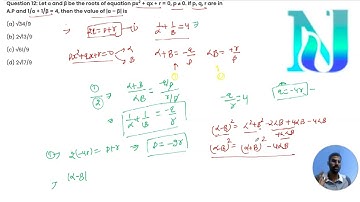 Question 12: Let α and β be the roots of equation px² + qx + r = 0, p ≠ 0. If p, q, r are in
A.P and 1/α + 1/β = 4, then the value of |α – β| is
(a) √34/9
(b) 2√13/9
(c) √61/9
(d) 2√17/9
2q = p+r
1/α + 1/β = 4
px²+qx+r = 0
α
β
α+β = -q/p
αβ = +r/p
①/②
α+β/αβ = -q/p / r/p
1/α + 1/β = -q/r
-q/r = 4
q = -4r
2(-4r) = p+r
p = -9r
(α-β)² = α²+β² -2αβ +4αβ -4αβ
+2αβ
(α-β)² = (α+β)² - 4αβ
|α-β|